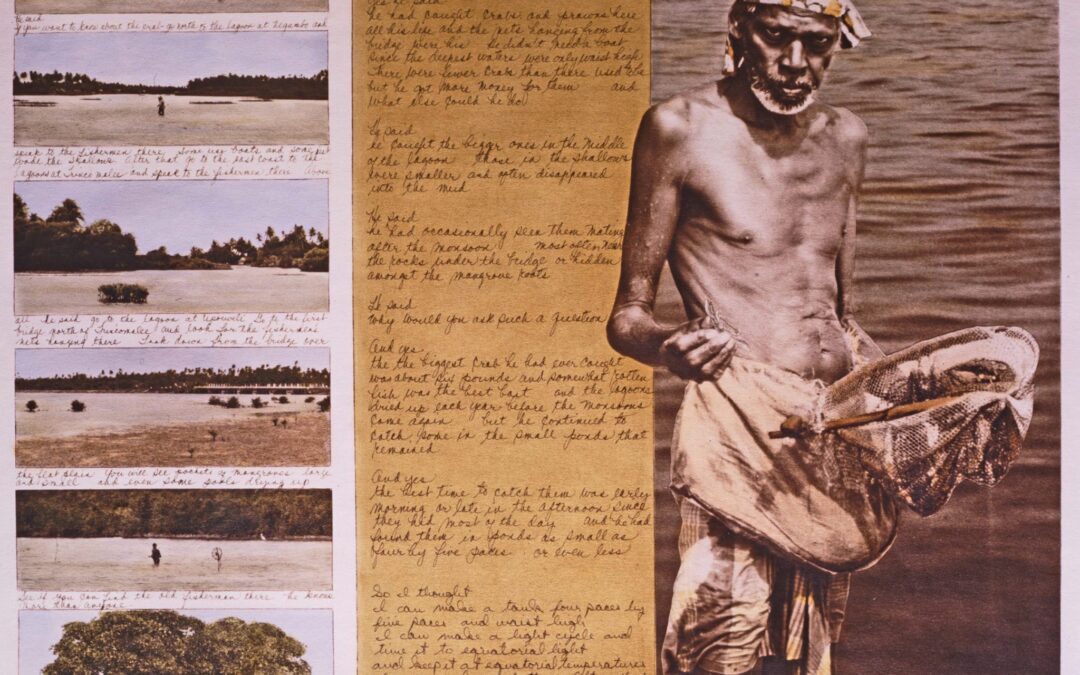 he said
if you want to know about the crab go north to the lagoon at Negombo and
speak to the fishermen there Some use boats and some just
wade the shallows After that go to the east coast to the
lagoons at and speak to the fishermen there Above
all he said go to the lagoon at Go to the first
bridge north of Trincomalee and look for the fisherman's
nets hanging there Look down from the bridge over
the flat plain You will see pockets of mangroves large
and small and even some pools drying up
See if you can find the old fisherman there he knows
more than anyone
Yes he said
he had caught crabs and prawns here
all his life and the nets hanging from the
bridge were his He didn't need a boat
since the deepest waters were only waist high
There were fewer crabs than there used to be
but he got more money for them and
what else could he do
He said
he caught the bigger ones in the middle
of the lagoon those in the shallows
were smaller and often disappeared
into the mud
He said
he had occasionally seen them mating
after the monsoon most often near
the rocks under the bridge or hidden
amongst the mangrove roots
He said
why would you ask such a question
And yes
the the biggest crab he had ever caught
was about six pounds and somewhat rotten
fish was the best bait and the lagoons
dried up each year before the monsoons
came again but he continued to
catch some in the small ponds that
remained
And yes
the best time to catch them was early
morning or late in the afternoon since
they hid most of the day and he had
found them in ponds as small as
four by five paces or even less
So I thought
I can make a tank four paces by
five paces and waist high
I can make a light cycle and
time it to equatorial light
and keep it at equatorial temperatures